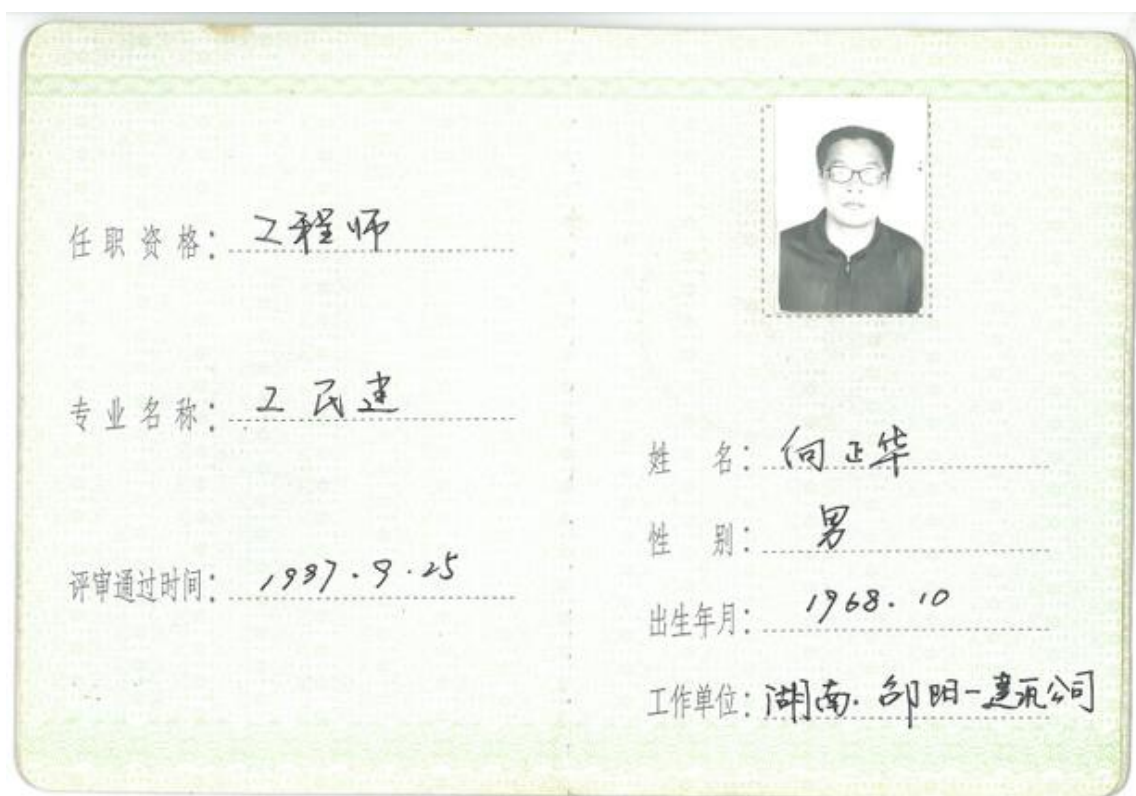 任职资格：工程师
专业名称：工民建
评审通过时间：1997.9.25
姓名：向正华
性别：男
出生年月：1968.10
工作单位：湖南.邵阳一建公司